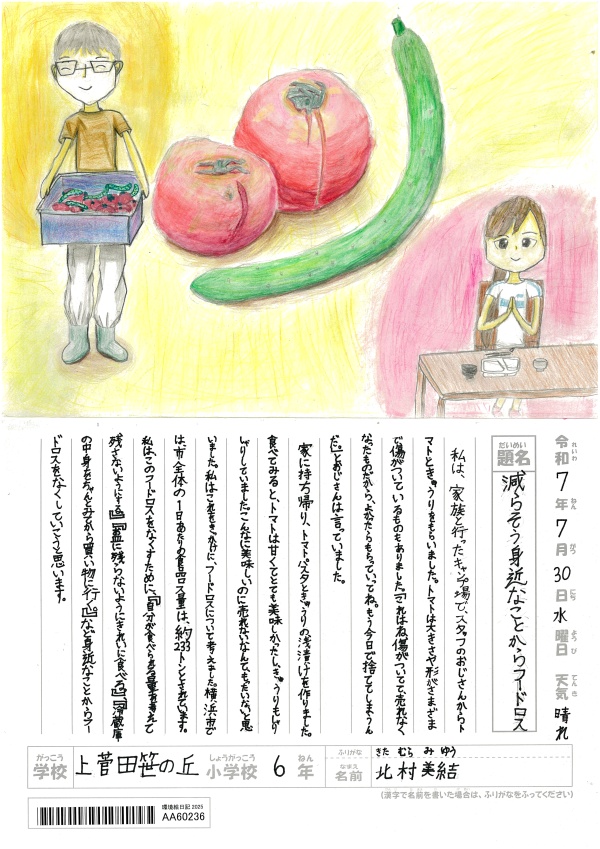 令和7年7月30日水曜日 天気晴れ
れいわ ねん がつ にち ようび てんき
だいめい
題名
減らそう身近なことからフードロス
私は、家族と行ったキャンプ場で、スタッフのおじさんからト
マトときゅうりをもらいました。トマトは大きさや形がさまざま
で傷がついているものもありました。「これはね、傷がついて、売れなく
なったものだから、よかったらもらっていってね。もう今日で捨ててしまうん
だ。」とおじさんは言っていました。
家に持ち帰り、トマトパスタときゅうりの浅漬けを作りました。
食べてみると、トマトは甘くてとても美味しかったし、きゅうりもしゃ
しゃりしていました。こんなに美味しいのに売れないなんて、もったいないと思
いました。私はこれをきっかけに、フードロスについて考えました。横浜市で
は、市全体の1日あたりの食品ロス量は、約233トンとされています。
私は、このフードロスをなくすために、『自分が食べられる量を考えて
残さないようにする』『お皿に残らないようにきれいに食べる』『冷蔵庫
の中身をちゃんとみてから買い物に行く』など身近なことからフー
ドロスをなくしていこうと思います。
がっこう
学校
上菅田笹の丘
しょうがっこう
小学校
6
ねん
年
ふりがな
きた むら み ゆう
なまえ
名前
北村美結
(漢字で名前を書いた場合は、ふりがなをふってください)
環境絵日記 2025
AA60236